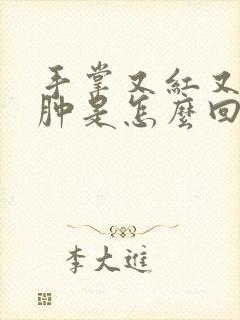 手掌又紅又
肿是怎麼回
李大進